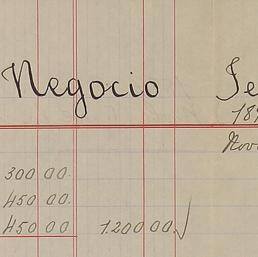 Negocio
300 00.
450 00.
450 00 1200 00.